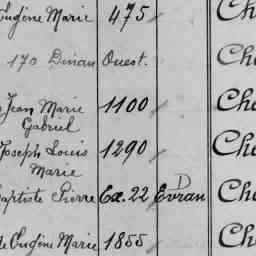 Eugène Marie 475 Ch
170 Dinan Ouest. Ch
Jean Marie 1100 Ch
Gabriel
Joseph Louis 1290 Ch
Marie
Baptiste Pierre Ex. 22 Evran D Ch
de Eugène Marie 1855 Ch